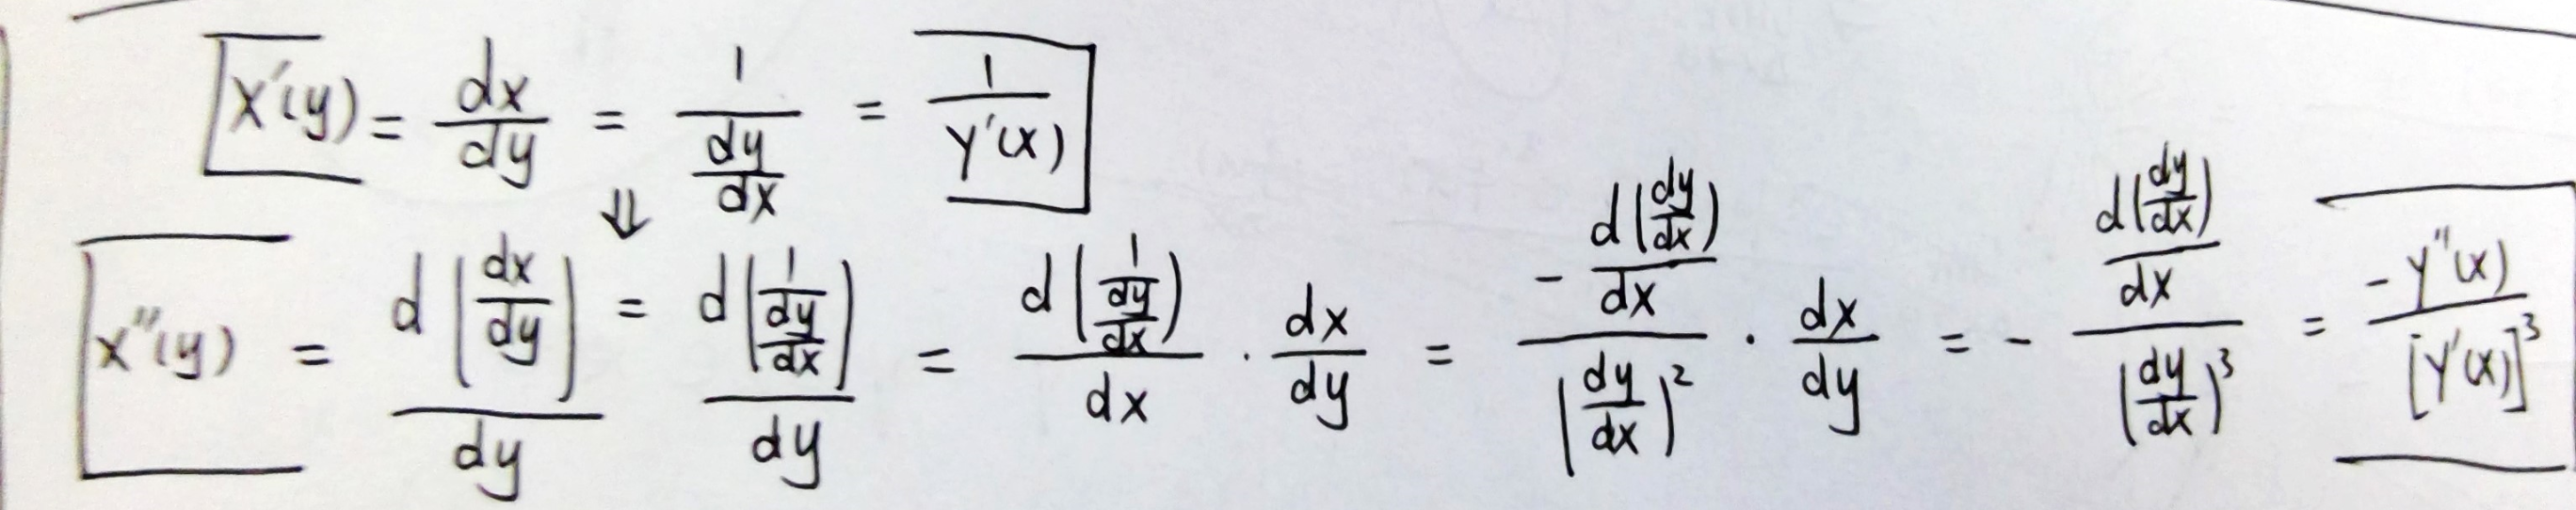 x'(y) = \frac{dx}{dy} = \frac{1}{\frac{dy}{dx}} = \frac{1}{y'(x)}
⇓
x''(y) = \frac{d\left(\frac{dx}{dy}\right)}{dy} = \frac{d\left(\frac{1}{\frac{dy}{dx}}\right)}{dy} = \frac{d\left(\frac{1}{\frac{dy}{dx}}\right)}{dx} \cdot \frac{dx}{dy} = \frac{-\frac{d\left(\frac{dy}{dx}\right)}{dx}}{\left(\frac{dy}{dx}\right)^2} \cdot \frac{dx}{dy} = -\frac{\frac{d\left(\frac{dy}{dx}\right)}{dx}}{\left(\frac{dy}{dx}\right)^3} = \frac{-y''(x)}{[y'(x)]^3}